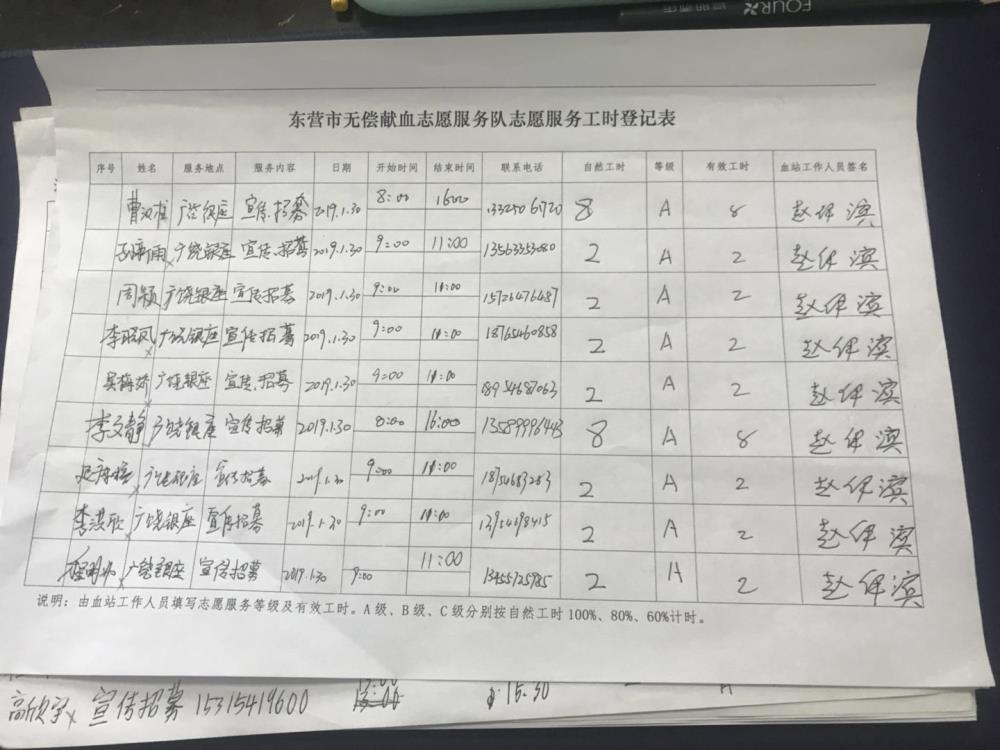 FOUR
东营市无偿献血志愿服务队志愿服务工时登记表
序号 姓名 服务地点 服务内容 日期 开始时间 结束时间 联系电话 自然工时 等级 有效工时 血站工作人员签名
广饶银座 宣传.招募 2019.1.30 8:00 16:00 13325061720 8 A 8
广饶银座 宣传.招募 2019.1.30 9:00 11:00 13563353080 2 A 2
周颖 广饶银座 宣传招募 2019.1.30 9:00 11:00 15726476487 2 A 2
李昭凤 广饶银座 宣传招募 2019.1.30 9:00 11:00 18765460858 2 A 2
吴梅娇 广饶银座 宣传.招募 2019.1.30 9:00 11:00 18954687063 2 A 2
李文静 广饶银座 宣传招募 2019.1.30 8:00 16:00 8 A 8
广饶银座 宣传招募 2019.1.30 9:00 11:00 2 A 2
李洪欣 广饶银座 宣传招募 2019.1.30 9:00 11:00 13954698415 2 A 2
广饶银座 宣传招募 2019.1.30 9:00 11:00 13455725985 2 A 2
说明：由血站工作人员填写志愿服务等级及有效工时。A级、B级、C级分别按自然工时100%、80%、60%计时。
宣传招募 15315419600 15.30